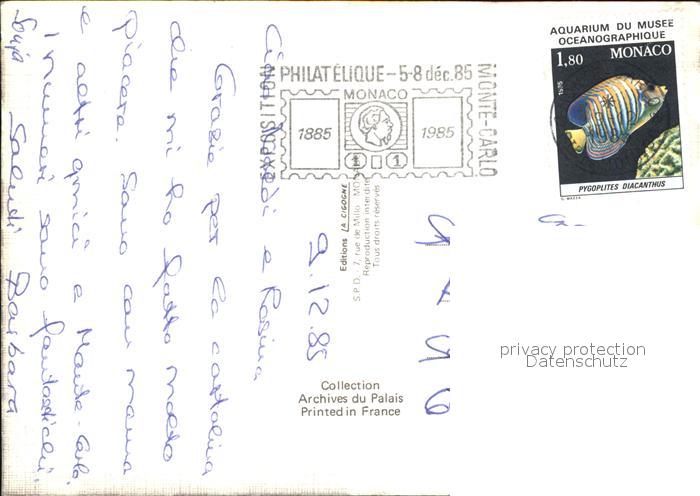 AQUARIUM DU MUSEE
OCEANOGRAPHIQUE
1,80 MONACO
1985
PYGOPLITES DIACANTHUS
EXPOSITION PHILATÉLIQUE - 5-8 déc. 85 MONTE-CARLO
MONACO
1885 1985
1 1
Editions LA CIGOGNE
S.P.D. - 7, rue de Millo - MO
Reproduction interdite
Tous droits réservés
Collection
Archives du Palais
Printed in France
9.12.85
Ciao e Rosina
Grazie per la cartolina
che mi ha fatto molto
piacere. Sono con mamma
e altri amici a Monte-Carlo.
I numeri sono fantastici!
Saluti Barbara
privacy protection
Datenschutz